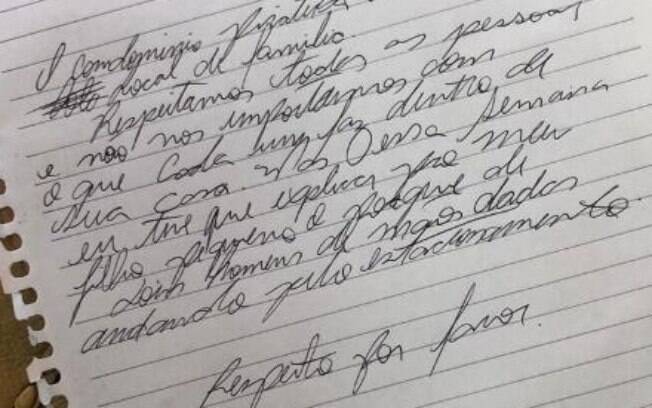 O condominio
local de familia.
Respeitamos todas as pessoas
e não nos importamos com
o que cada um faz dentro de
sua casa. Mas essa semana
eu tive que explicar pro meu
filho pequeno o porque de
dois homens de mãos dadas
andando pelo estacionamento.
Respeito por favor.